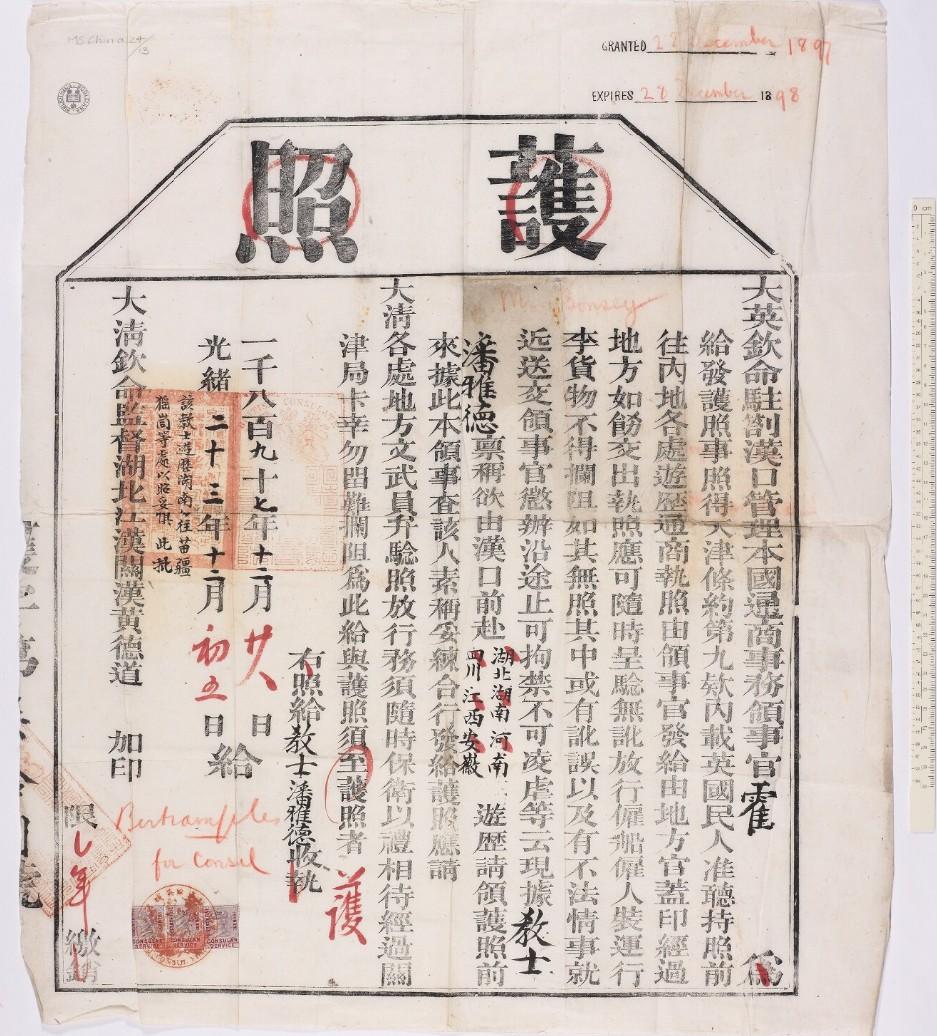 MS China 24/13
GRANTED 28 December 1897
EXPIRES 28 December 1898
護照
Mr. Bonsey
大英欽命駐劄漢口管理本國通商事務領事官霍 為
給發護照事照得天津條約第九款內載英國民人准聽持照前
往內地各處遊歷通商執照由領事官發給由地方官蓋印經過
地方如飭交出執照應可隨時呈驗無訛放行僱船僱人裝運行
李貨物不得攔阻如其無照其中或有訛誤以及有不法情事就
近送交領事官懲辦沿途止可拘禁不可凌虐等云現據教士
潘雅德稟稱欲由漢口前赴湖北湖南河南四川江西安徽遊歷請領護照前
來據此本領事查該人素稱妥練合行發給護照應請
大清各處地方文武員弁驗照放行務須隨時保衛以禮相待經過關
津局卡幸勿留難攔阻為此給與護照須至護照者
護
右照給教士潘雅德收執
一千八百九十七年十二月廿八日
光緒二十三年十二月初五日給
該教士遊歷湖南勿往苗疆
猺峝等處以昭妥慎此批
大清欽命監督湖北江漢關漢黃德道 加印
Bertram Giles
for Consul
CONSULAR SERVICE
CONSULAR SERVICE
CONSULAR SERVICE
限乚年繳銷